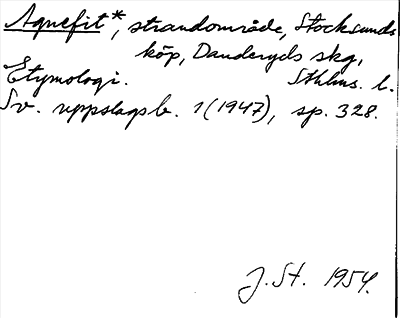 Agnefit*, strandområde, Stocksunds
köp, Danderyds skg,
Etymologi. Sthlms. l.
Sv. uppslagsb. 1 (1947), sp. 328.
J. St. 1954.